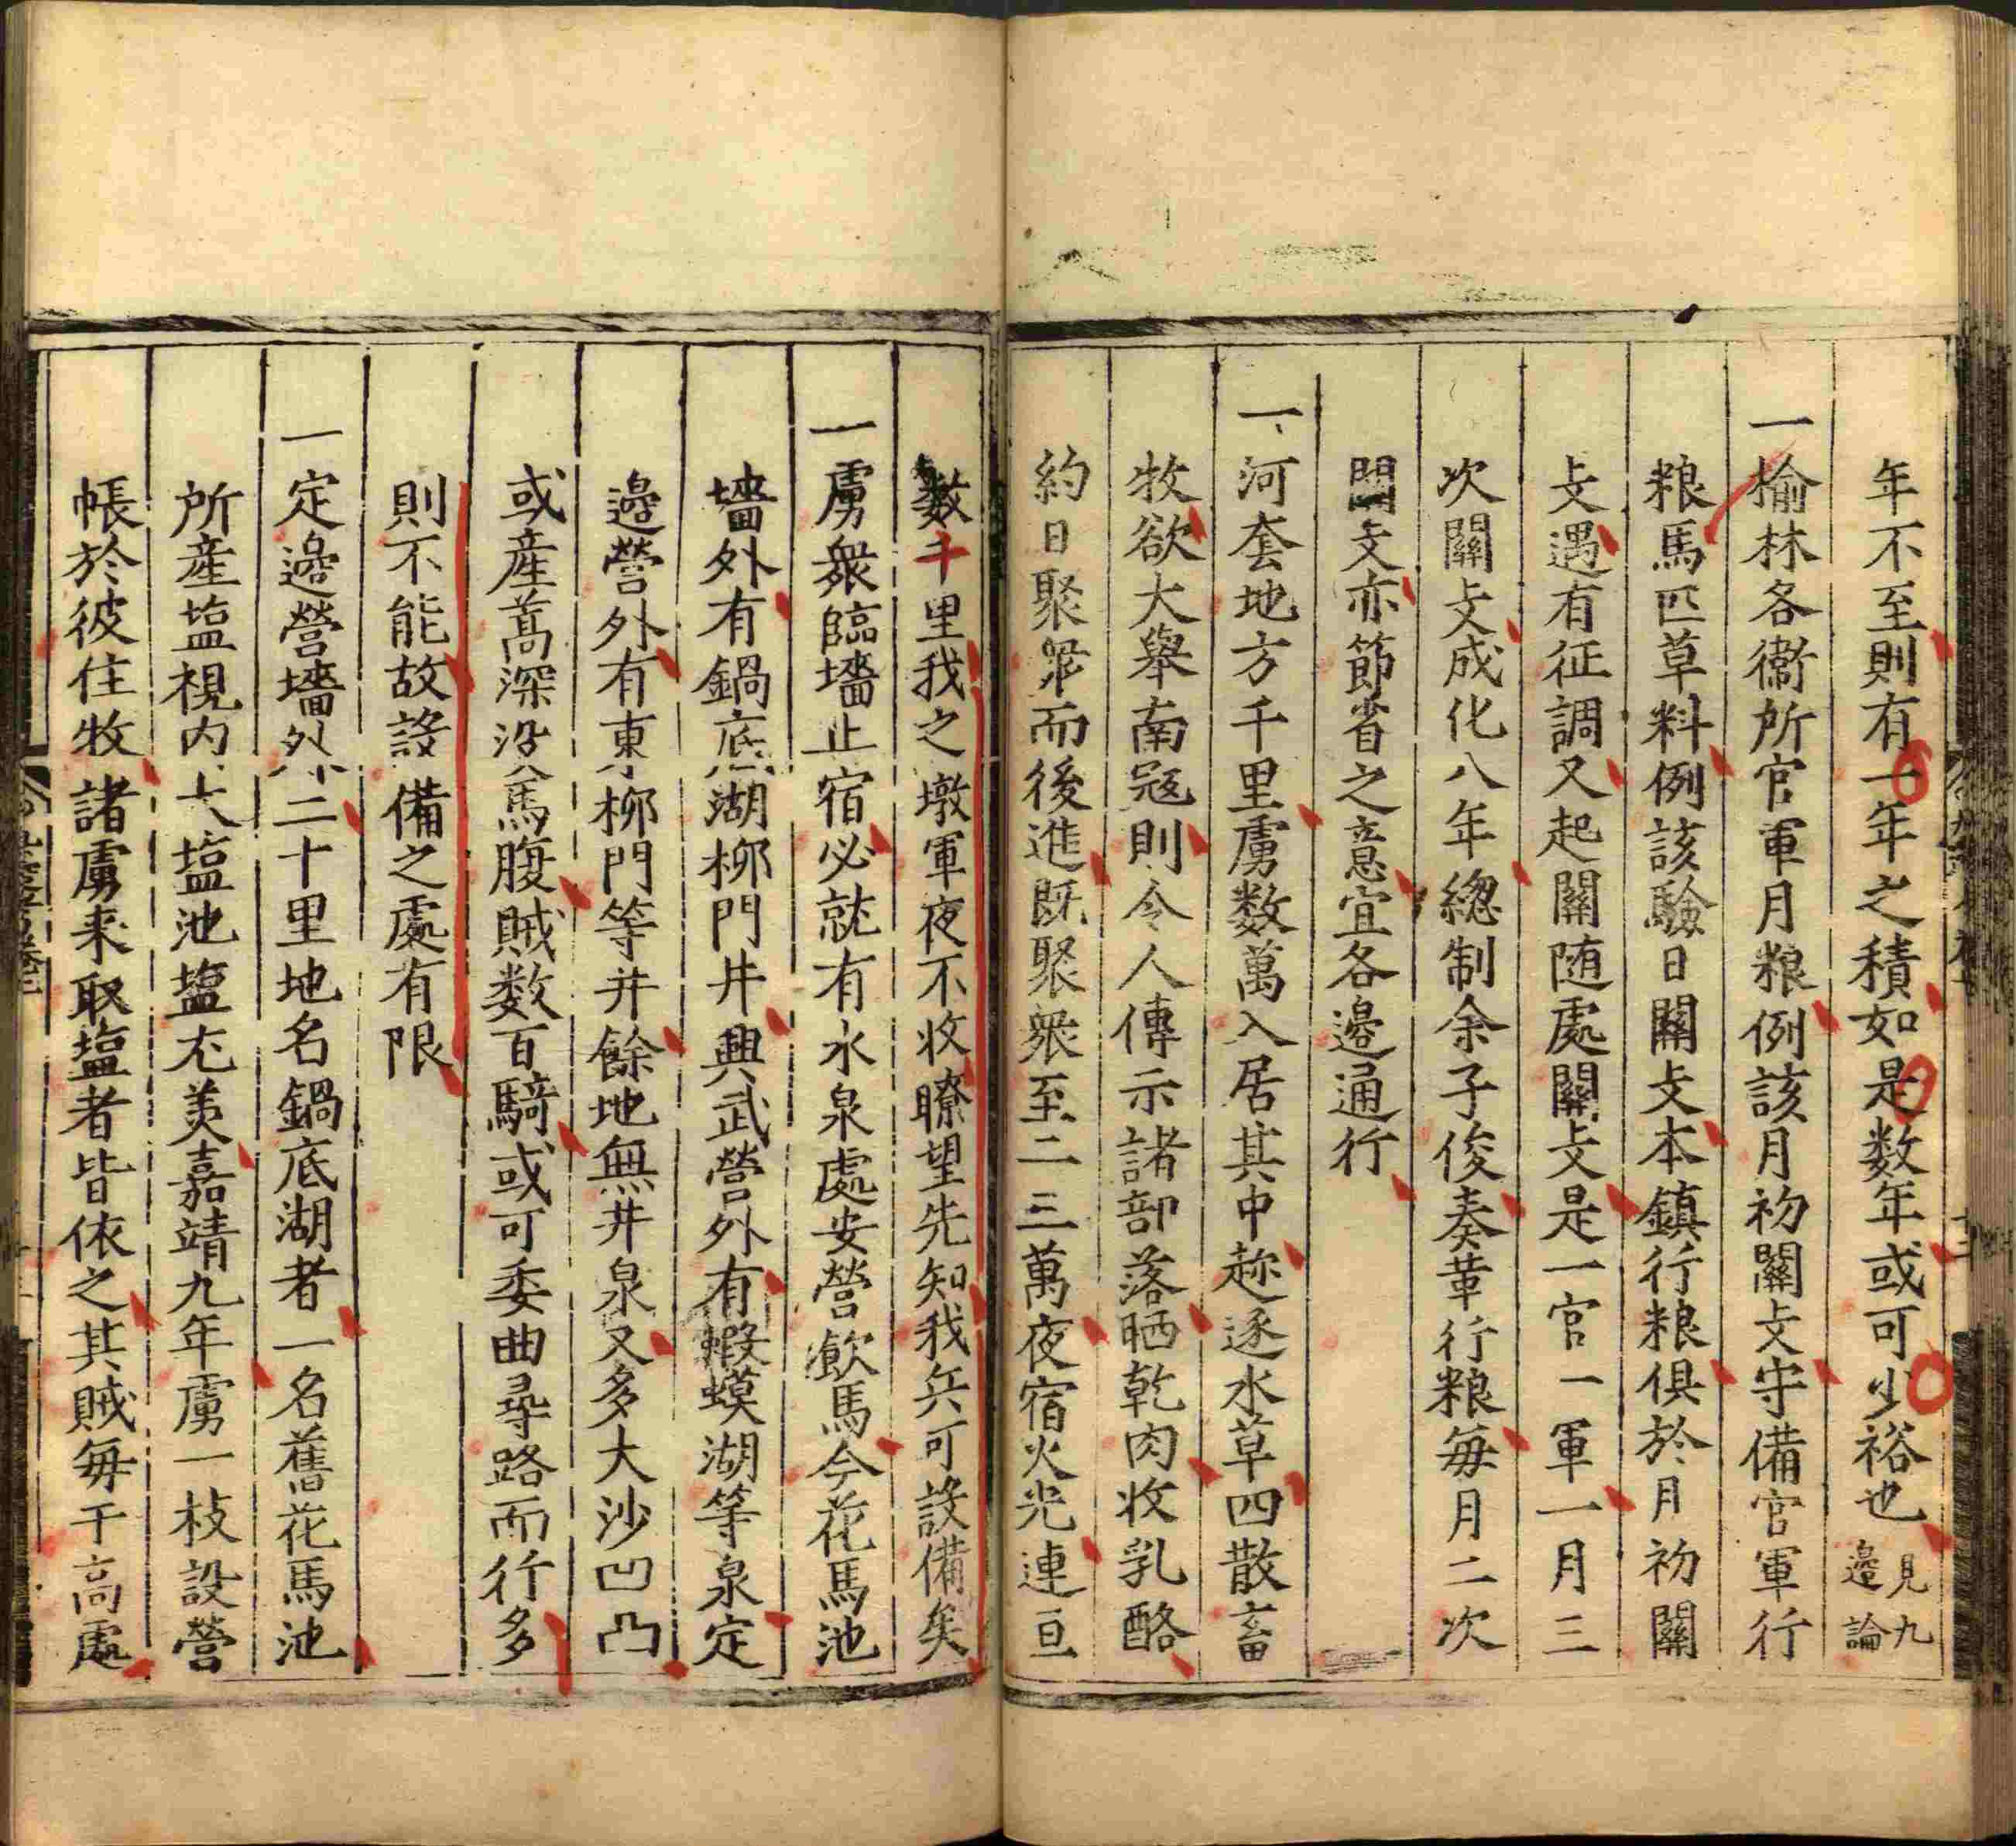 年不至則有一年之積如是数年或可少裕也見九邊論
一榆林各衞所官軍月粮例該月初關支守備官軍行
粮馬匹草料例該驗日關支本鎮行粮俱於月初關
支遇有征調又起關随處關支是一官一軍一月三
次關支成化八年總制余子俊奏革行粮每月二次
關支亦節省之意宜各邊通行
一河套地方千里虜数萬入居其中趂逐水草四散畜
牧欲大舉南冦則令人傳示諸部落晒乾肉收乳酪
約日聚衆而後進既聚衆至二三萬夜宿火光連亘
数千里我之墩軍夜不收瞭望先知我兵可設備矣
一虜衆臨墻止宿必就有水泉處安營飲馬今花馬池
墻外有鍋底湖柳門井興武營外有蝦蟆湖等泉定
邊營外有東柳門等井餘地無井泉又多大沙凹凸
或産蒿深没馬腹賊数百騎或可委曲尋路而行多
則不能故設備之處有限
一定邊營墻外二十里地名鍋底湖者一名舊花馬池
所産塩視内大塩池塩尤美嘉靖九年虜一枝設營
帳於彼住牧諸虜来取塩者皆依之其賊每于高處